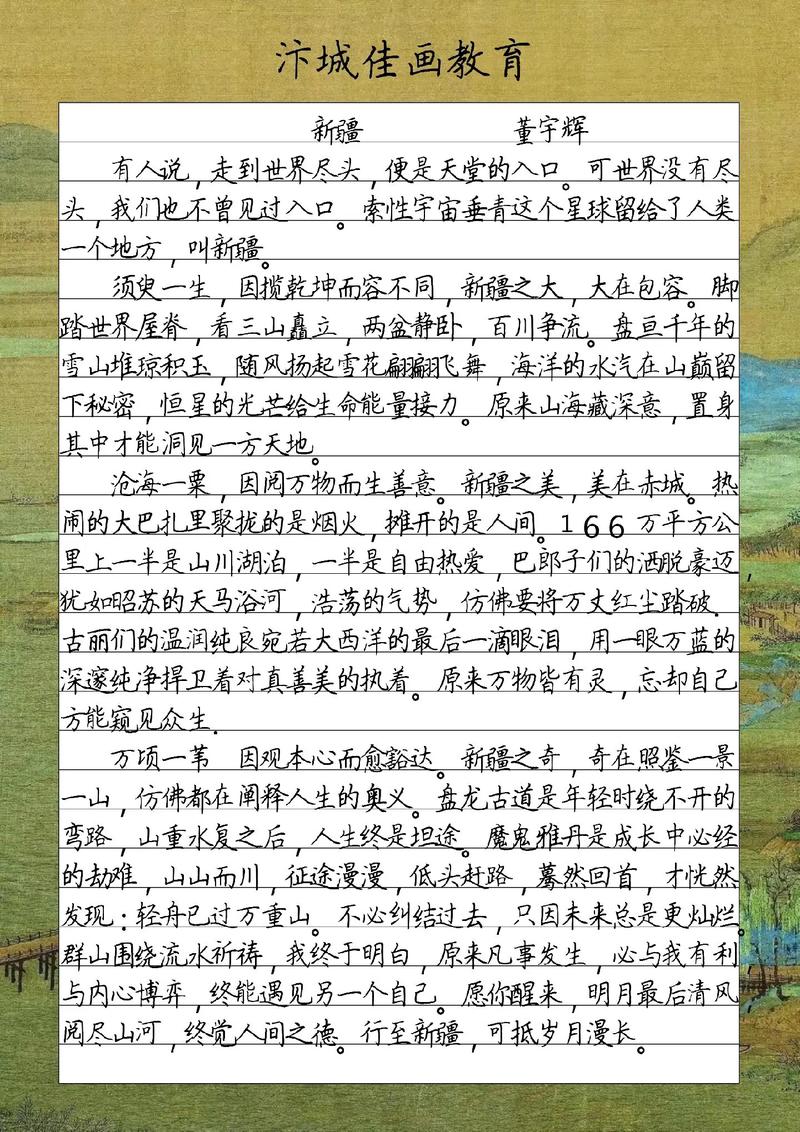 汴城佳画教育
新疆 董宇辉
有人说，走到世界尽头，便是天堂的入口。可世界没有尽
头，我们也不曾见过入口。索性宇宙垂青这个星球留给了人类
一个地方，叫新疆。
须臾一生，因揽乾坤而容不同，新疆之大，大在包容。脚
踏世界屋脊，看三山矗立，两盆静卧，百川争流。盘亘千年的
雪山堆琼积玉，随风扬起雪花翩翩飞舞，海洋的水汽在山巅留
下秘密，恒星的光芒给生命能量接力。原来山海藏深意，置身
其中才能洞见一方天地。
沧海一粟，因阅万物而生善意。新疆之美，美在赤城。热
闹的大巴扎里聚拢的是烟火，摊开的是人间。166万平方公
里上一半是山川湖泊，一半是自由热爱，巴郎子们的洒脱豪迈，
犹如昭苏的天马浴河，浩荡的气势，仿佛要将万丈红尘踏破.
古丽们的温润纯良宛若大西洋的最后一滴眼泪，用一眼万蓝的
深邃纯净捍卫着对真善美的执着。原来万物皆有灵，忘却自己
方能窥见众生.
万顷一苇 因观本心而愈豁达。新疆之奇，奇在照鉴一景
一山，仿佛都在阐释人生的奥义。盘龙古道是年轻时绕不开的
弯路，山重水复之后，人生终是坦途。魔鬼雅丹是成长中必经
的劫难，山山而川，征途漫漫，低头赶路，蓦然回首，才恍然
发现：轻舟已过万重山。不必纠结过去，只因未来总是更灿烂。
群山围绕流水祈祷，我终于明白，原来凡事发生，必与我有利
与内心博弈，终能遇见另一个自己。愿你醒来，明月最后清风，
阅尽山河，终觉人间之德。行至新疆，可抵岁月漫长。